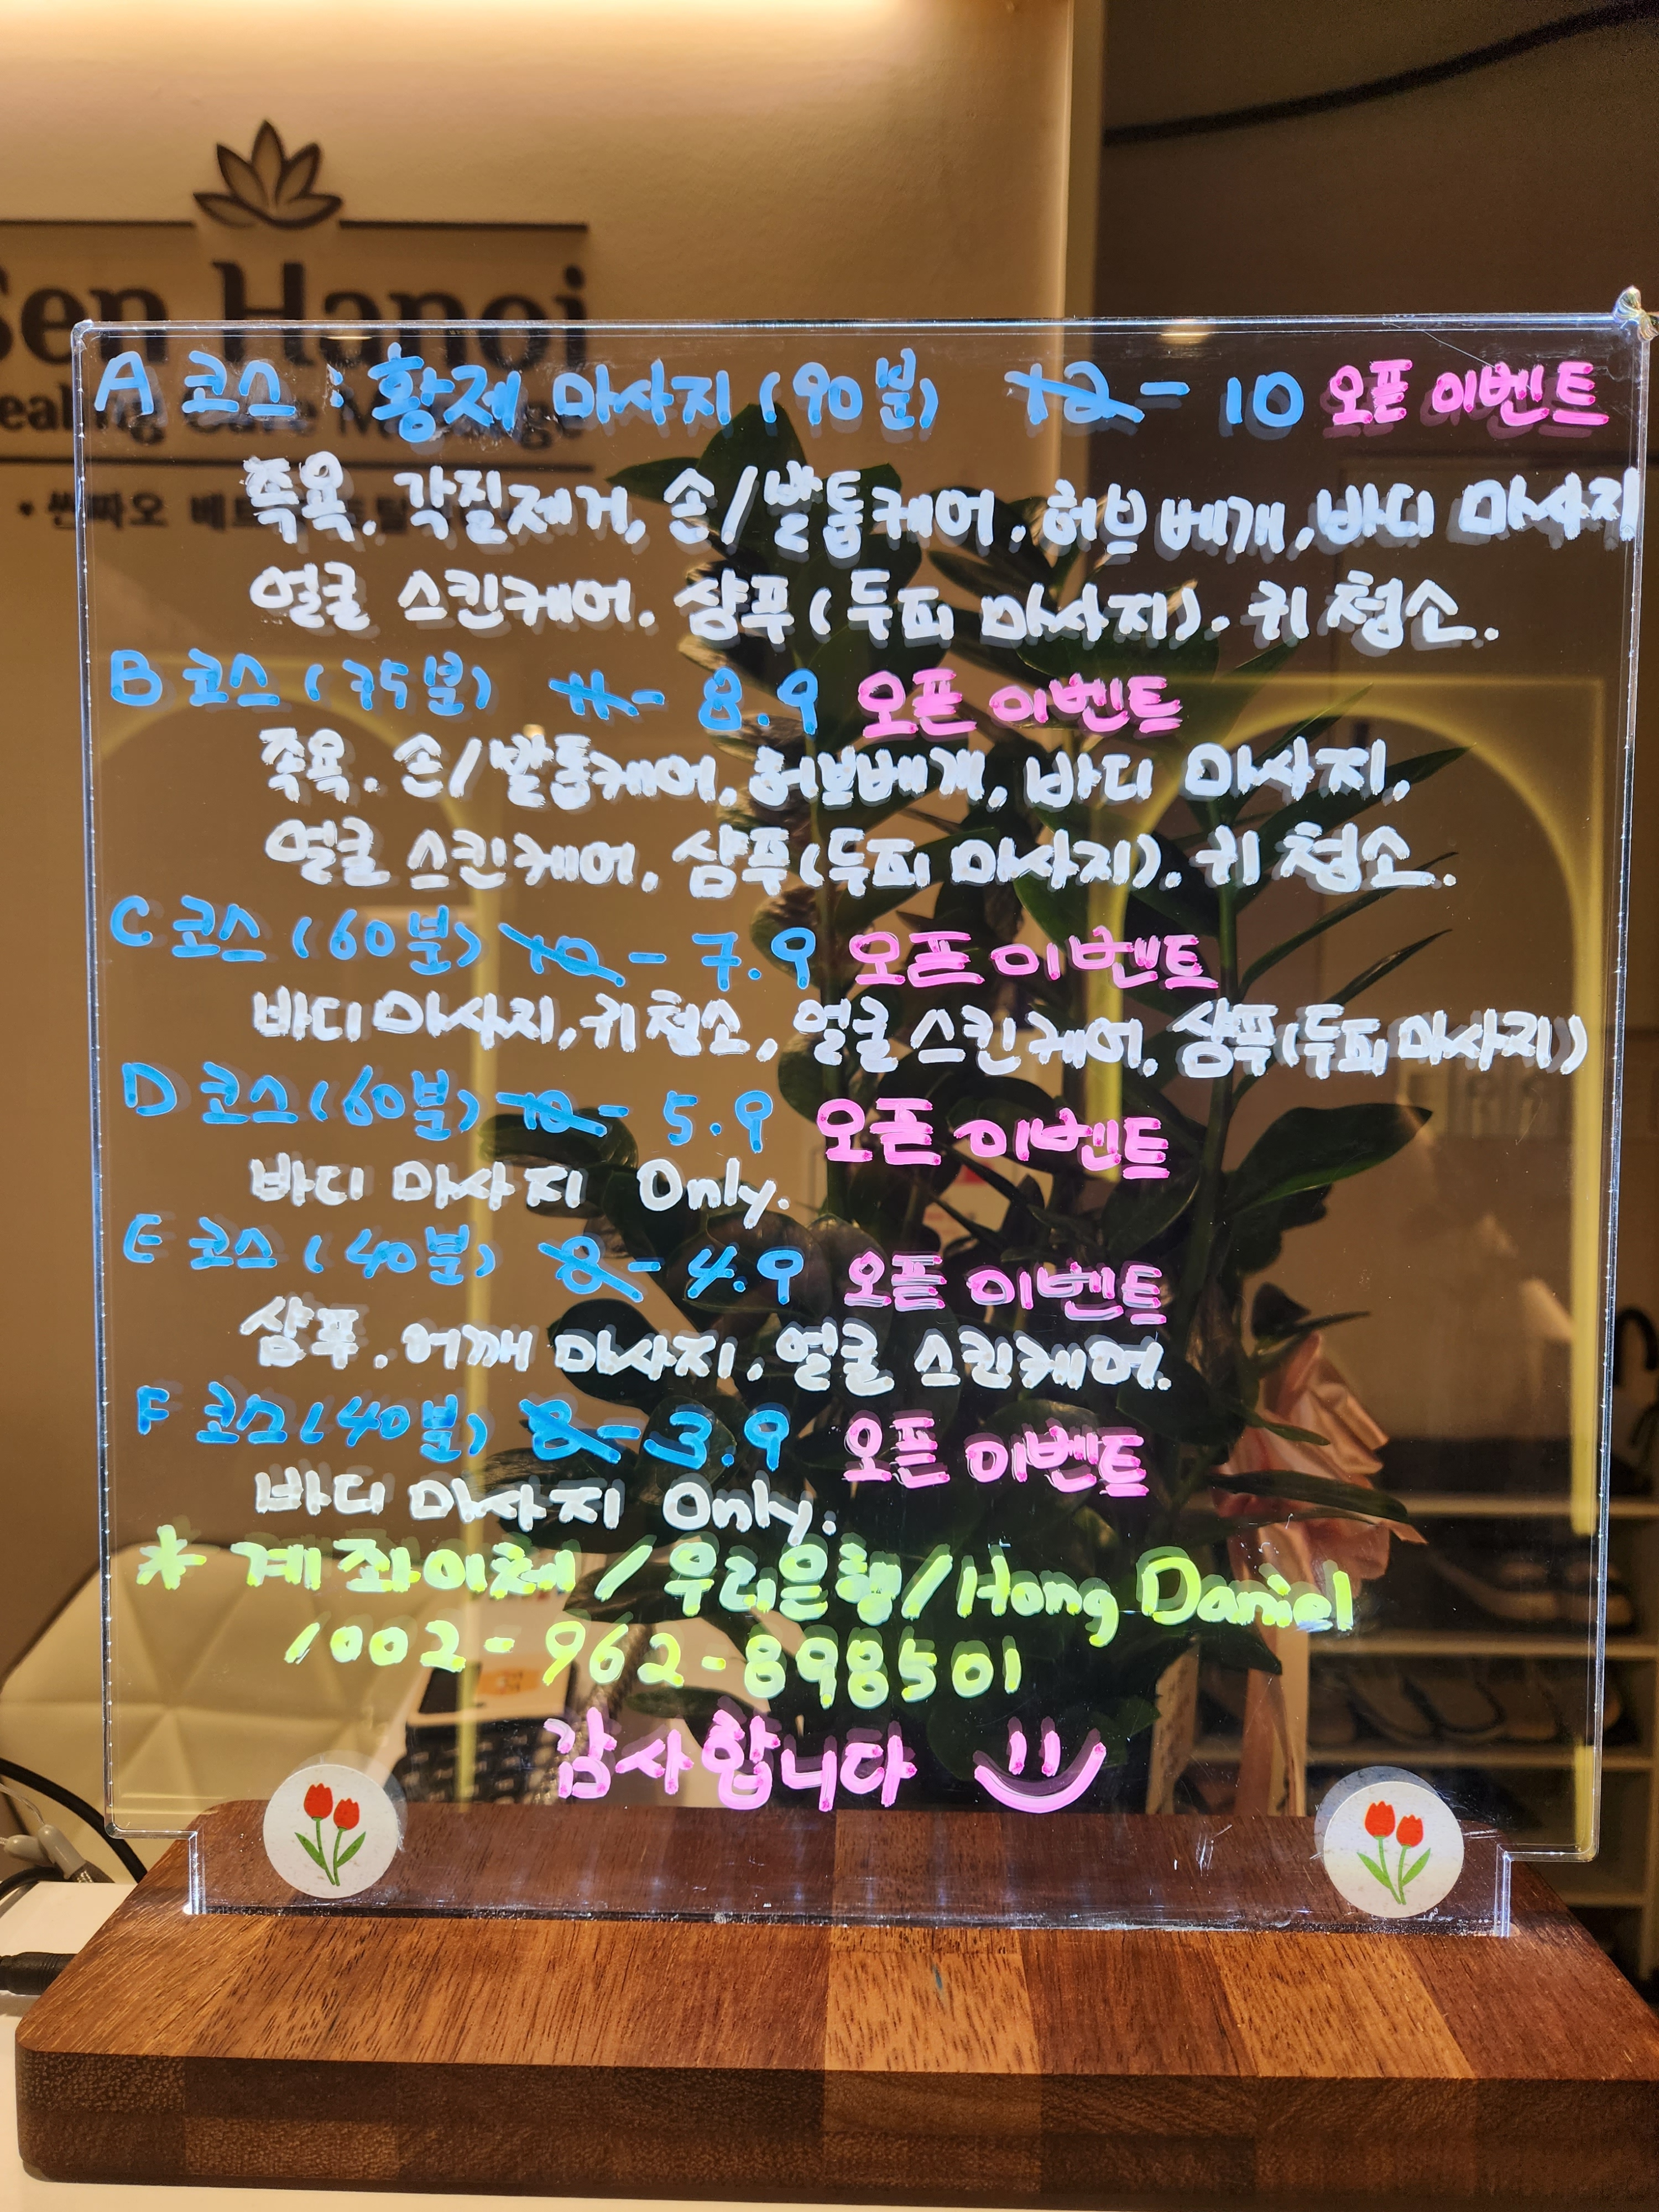 Sen Hanoi
A 코스 : 황제 마사지 (90분) 12 - 10 오픈 이벤트
족욕. 각질제거, 손/발톱케어. 허브베개, 바디 마사지
얼굴 스킨케어. 샴푸(두피 마사지). 귀 청소.
B 코스 (75분) 11 - 8.9 오픈 이벤트
족욕. 손/발톱케어, 허브베개, 바디 마사지,
얼굴 스킨케어, 샴푸(두피 마사지). 귀 청소.
C 코스 (60분) 10 - 7.9 오픈 이벤트
바디 마사지, 귀 청소, 얼굴 스킨케어. 샴푸(두피 마사지)
D 코스 (60분) 10 - 5.9 오픈 이벤트
바디 마사지 Only.
E 코스 (40분) 8 - 4.9 오픈 이벤트
샴푸. 어깨 마사지, 얼굴 스킨케어.
F 코스 (40분) 8 - 3.9 오픈 이벤트
바디 마사지 Only.
* 계좌이체 / 우리은행 / Hong Daniel
1002-962-898501
감사합니다